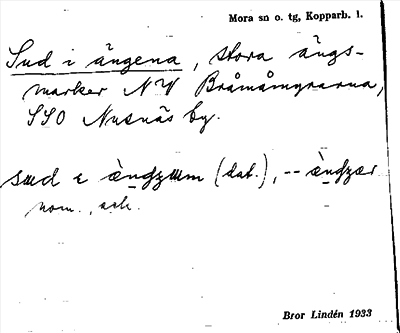 Mora sn o. tg, Kopparb. l.
Sud i ängena, stora ängs-
marker NV Bråmåmyrarna,
SSO Nusnäs by.
sud ɛ ȧndzum (dat.), -- ȧndzær
nom., ack.
Bror Lindén 1933